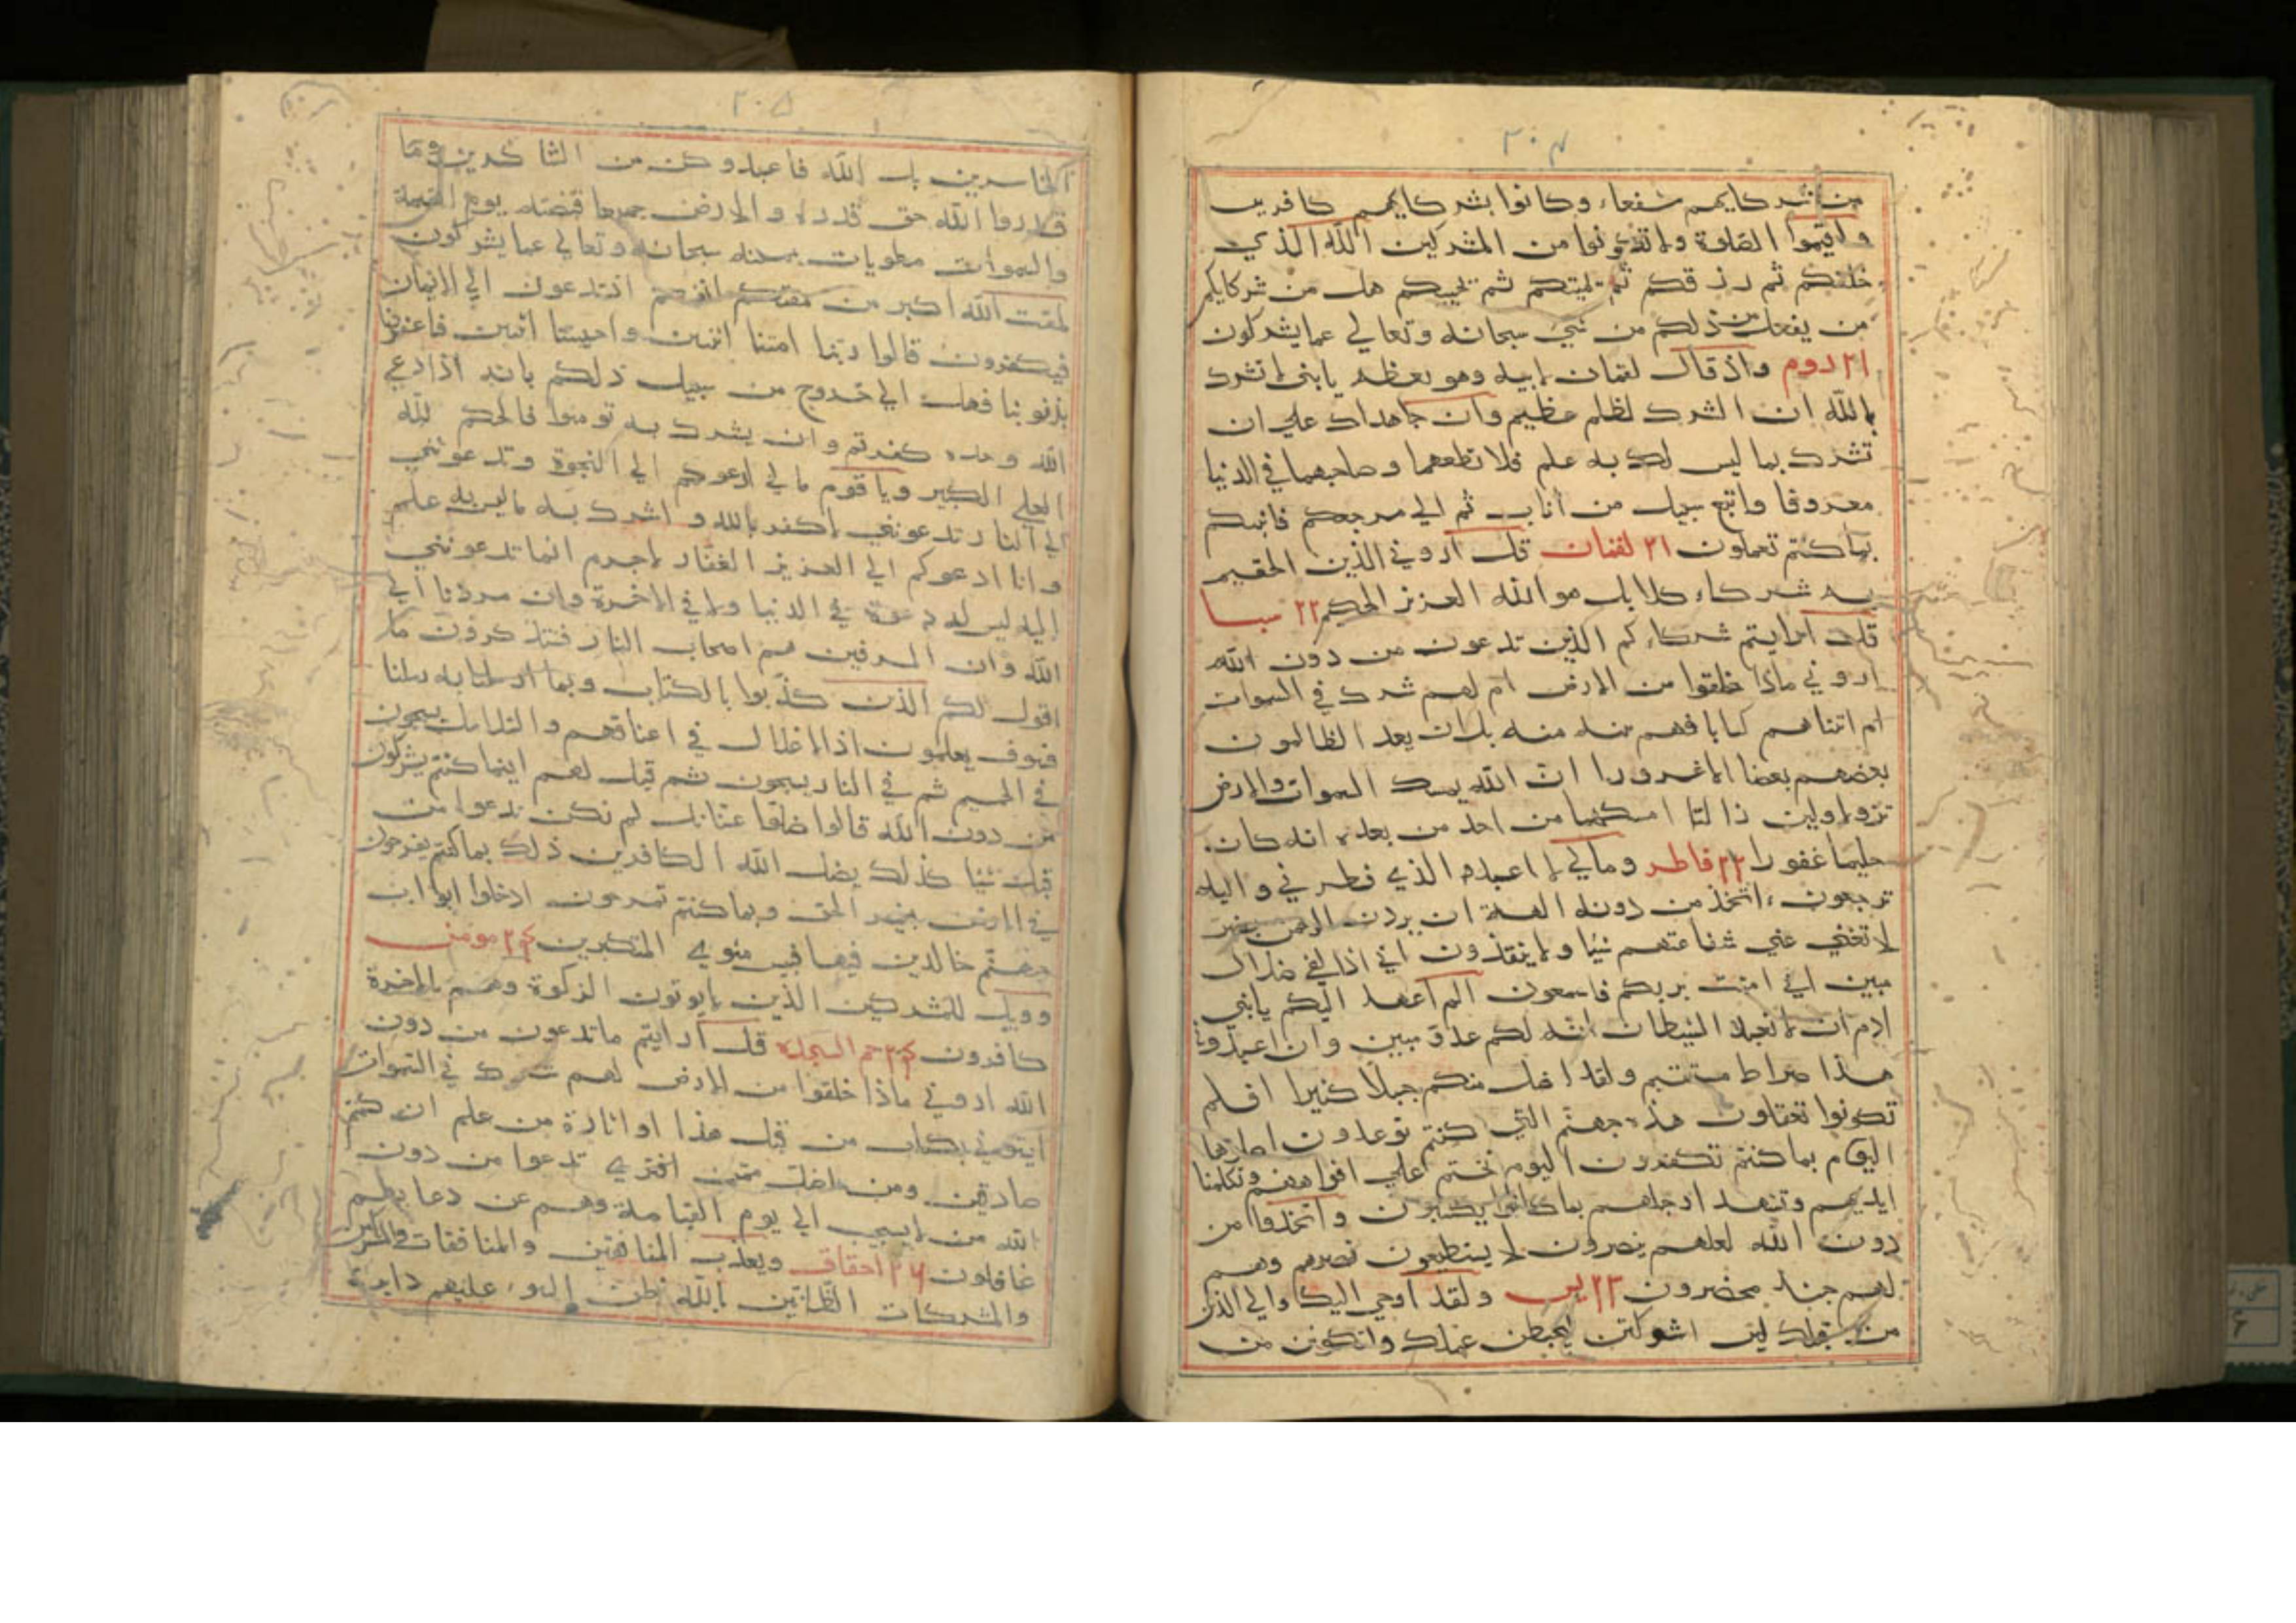 ٣٠٤
من شركايهم شفعاء وكانوا بشركايهم كافرين
واقيموا الصلوة ولا تكونوا من المشركين الله الذي
خلقكم ثم رزقكم ثم يميتكم ثم يحييكم هل من شركايكم
من يفعل من ذلكم من شيء سبحانه وتعالي عما يشركون
٢١ روم واذ قال لقمان لابنه وهو يعظه يا بني لا تشرك
بالله ان الشرك لظلم عظيم وان جاهداك علي ان
تشرك بما ليس لك به علم فلا تطعهما وصاحبهما في الدنيا
معروفا واتبع سبيل من اناب ثم الي مرجعكم فانبيكم
بما كنتم تعملون ٢١ لقمان قل اروني الذين الحقتم
به شركاء كلا بل هو الله العزيز الحكيم ٢٢ سبا
قل ارايتم شركاءكم الذين تدعون من دون الله
اروني ماذا خلقوا من الارض ام لهم شرك في السموات
ام اتيناهم كتابا فهم بينه منه بل ان يعد الظالمون
بعضهم بعضا الا غرورا ان الله يمسك السموات والارض
تزولا ولين زالتا امسكهما من احد من بعده انه كان
حليما غفورا ٢٢ فاطر ومالي لا اعبد الذي فطرني واليه
ترجعون ءاتخذ من دونه الهة ان يردن الرحمن بضر
لا تغني عني شفاعتهم شيا ولا ينقذون اني اذا لفي ضلال
مبين اني امنت بربكم فاسمعون الم اعهد اليكم يا بني
ادم ان لا تعبدوا الشيطان انه لكم عدو مبين وان اعبدوني
هذا صراط مستقيم ولقد اضل منكم جبلا كثيرا افلم
تكونوا تعقلون هذه جهنم التي كنتم توعدون اصلوها
اليوم بما كنتم تكفرون اليوم نختم علي افواههم وتكلمنا
ايديهم وتشهد ارجلهم بما كانوا يكسبون واتخذوا من
دون الله لعلهم ينصرون لا يستطيعون نصرهم وهم
لهم جند محضرون ٢٣ يس ولقد اوحي اليك والي الذين
من قبلك لين اشركت ليحبطن عملك ولتكونن من
٣٠٥
الخاسرين بل الله فاعبد وكن من الشاكرين وما
قدروا الله حق قدره والارض جميعا قبضته يوم القيمة
والسموات مطويات بيمينه سبحانه وتعالي عما يشركون
لمقت الله اكبر من مقتكم انفسكم اذ تدعون الي الايمان
فتكفرون قالوا ربنا امتنا اثنين واحييتنا اثنين فاعترفنا
بذنوبنا فهل الي خروج من سبيل ذلكم بانه اذا دعي
الله وحده كفرتم وان يشرك به تومنوا فالحكم لله
العلي الكبير ويا قوم مالي ادعوكم الي النجوة وتدعونني
الي النار تدعونني لاكفر بالله واشرك به ما ليس به علم
وانا ادعوكم الي العزيز الغفار لا جرم انما تدعونني
اليه ليس له دعوة في الدنيا ولا في الاخرة وان مردنا الي
الله وان المسرفين هم اصحاب النار فستذكرون ما
اقول لكم الذين كذبوا بالكتاب وبما ارسلنا به رسلنا
فسوف يعلمون اذ الاغلال في اعناقهم والسلاسل يسحبون
في الحميم ثم في النار يسجرون ثم قيل لهم اينما كنتم يشركون
من دون الله قالوا ضلوا عنا بل لم نكن ندعوا من
قبل شيا كذلك يضل الله الكافرين ذلك بما كنتم تفرحون
في الارض بغير الحق وبما كنتم تمرحون ادخلوا ابواب
جهنم خالدين فيها فبيس مثوي المتكبرين ٢٤ مومن
وويل للمشركين الذين لا يوتون الزكوة وهم بالاخرة
كافرون ٢٤ حم السجده قل ارايتم ما تدعون من دون
الله اروني ماذا خلقوا من الارض لهم شرك في السموات
ايتوني بكتاب من قبل هذا او اثارة من علم ان كنتم
صادقين ومن اضل ممن افتري تدعوا من دون
الله من لا يستجيب الي يوم القيامة وهم عن دعايهم
غافلون ٢٦ احقاف ويعذب المنافقين والمنافقات والمشركين
والمشركات الظانين بالله ظن السوء عليهم دايرة